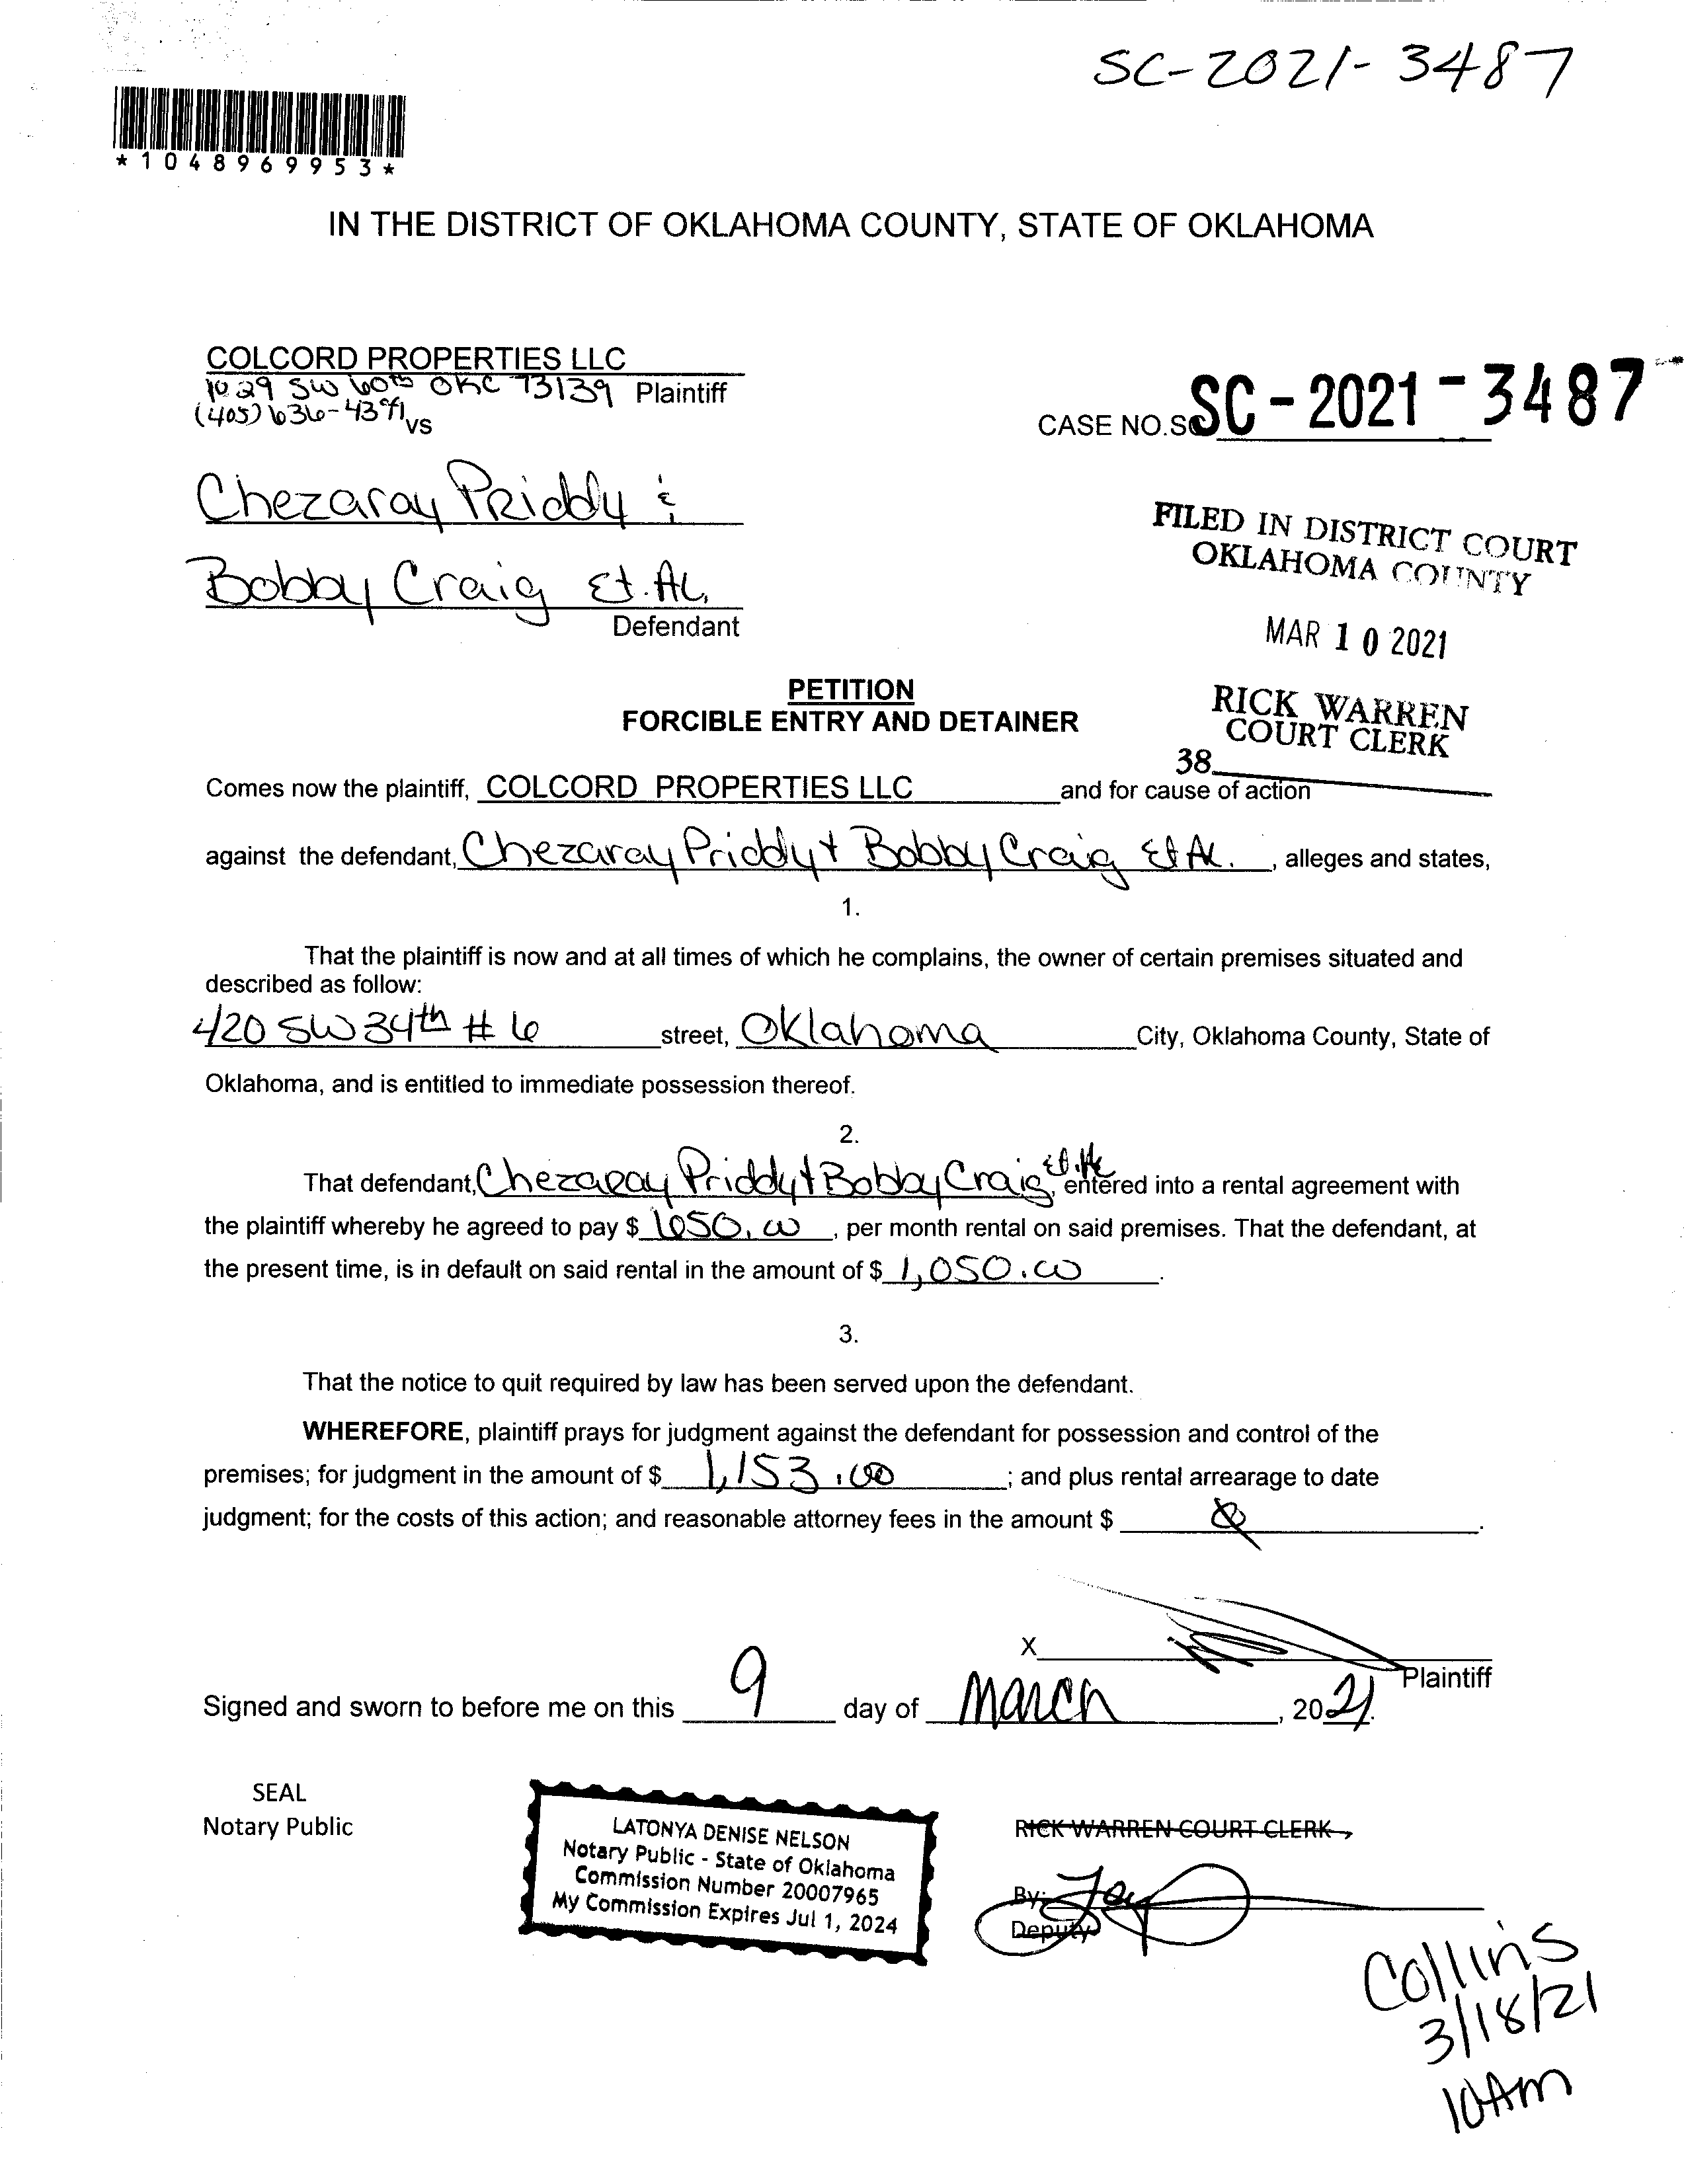 SC-2021-3487
*1048969953*
IN THE DISTRICT OF OKLAHOMA COUNTY, STATE OF OKLAHOMA
COLCORD PROPERTIES LLC
1029 SW 60th OKC 73139 Plaintiff
(405) 636-4391 vs
CASE NO.SC SC-2021-3487
Chezaray Priddy &
Bobby Craig Et. Al,
Defendant
FILED IN DISTRICT COURT
OKLAHOMA COUNTY
MAR 10 2021
RICK WARREN
COURT CLERK
38
PETITION
FORCIBLE ENTRY AND DETAINER
Comes now the plaintiff, COLCORD PROPERTIES LLC and for cause of action
against the defendant, Chezaray Priddy + Bobby Craig Et Al. , alleges and states,
1.
That the plaintiff is now and at all times of which he complains, the owner of certain premises situated and
described as follow:
420 SW 34th # 6 street, Oklahoma City, Oklahoma County, State of
Oklahoma, and is entitled to immediate possession thereof.
2.
That defendant, Chezaray Priddy + Bobby Craig Et. Al, entered into a rental agreement with
the plaintiff whereby he agreed to pay $ 650.00 , per month rental on said premises. That the defendant, at
the present time, is in default on said rental in the amount of $ 1,050.00 .
3.
That the notice to quit required by law has been served upon the defendant.
WHEREFORE, plaintiff prays for judgment against the defendant for possession and control of the
premises; for judgment in the amount of $ 1,153.00 ; and plus rental arrearage to date
judgment; for the costs of this action; and reasonable attorney fees in the amount $ .
X
Plaintiff
Signed and sworn to before me on this 9 day of March , 2021.
SEAL
Notary Public
LATONYA DENISE NELSON
Notary Public - State of Oklahoma
Commission Number 20007965
My Commission Expires Jul 1, 2024
RICK WARREN COURT CLERK
By:
Deputy
Collins
3/18/21
10Am